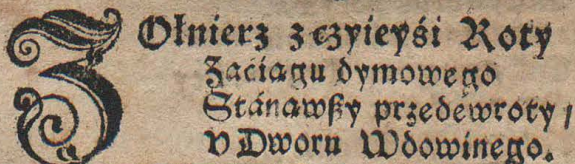 ZOłnierz z czyieyśi Roty
Zaciągu dymowego
Stánąwszy przedewroty /
v Dworu Wdowinego.